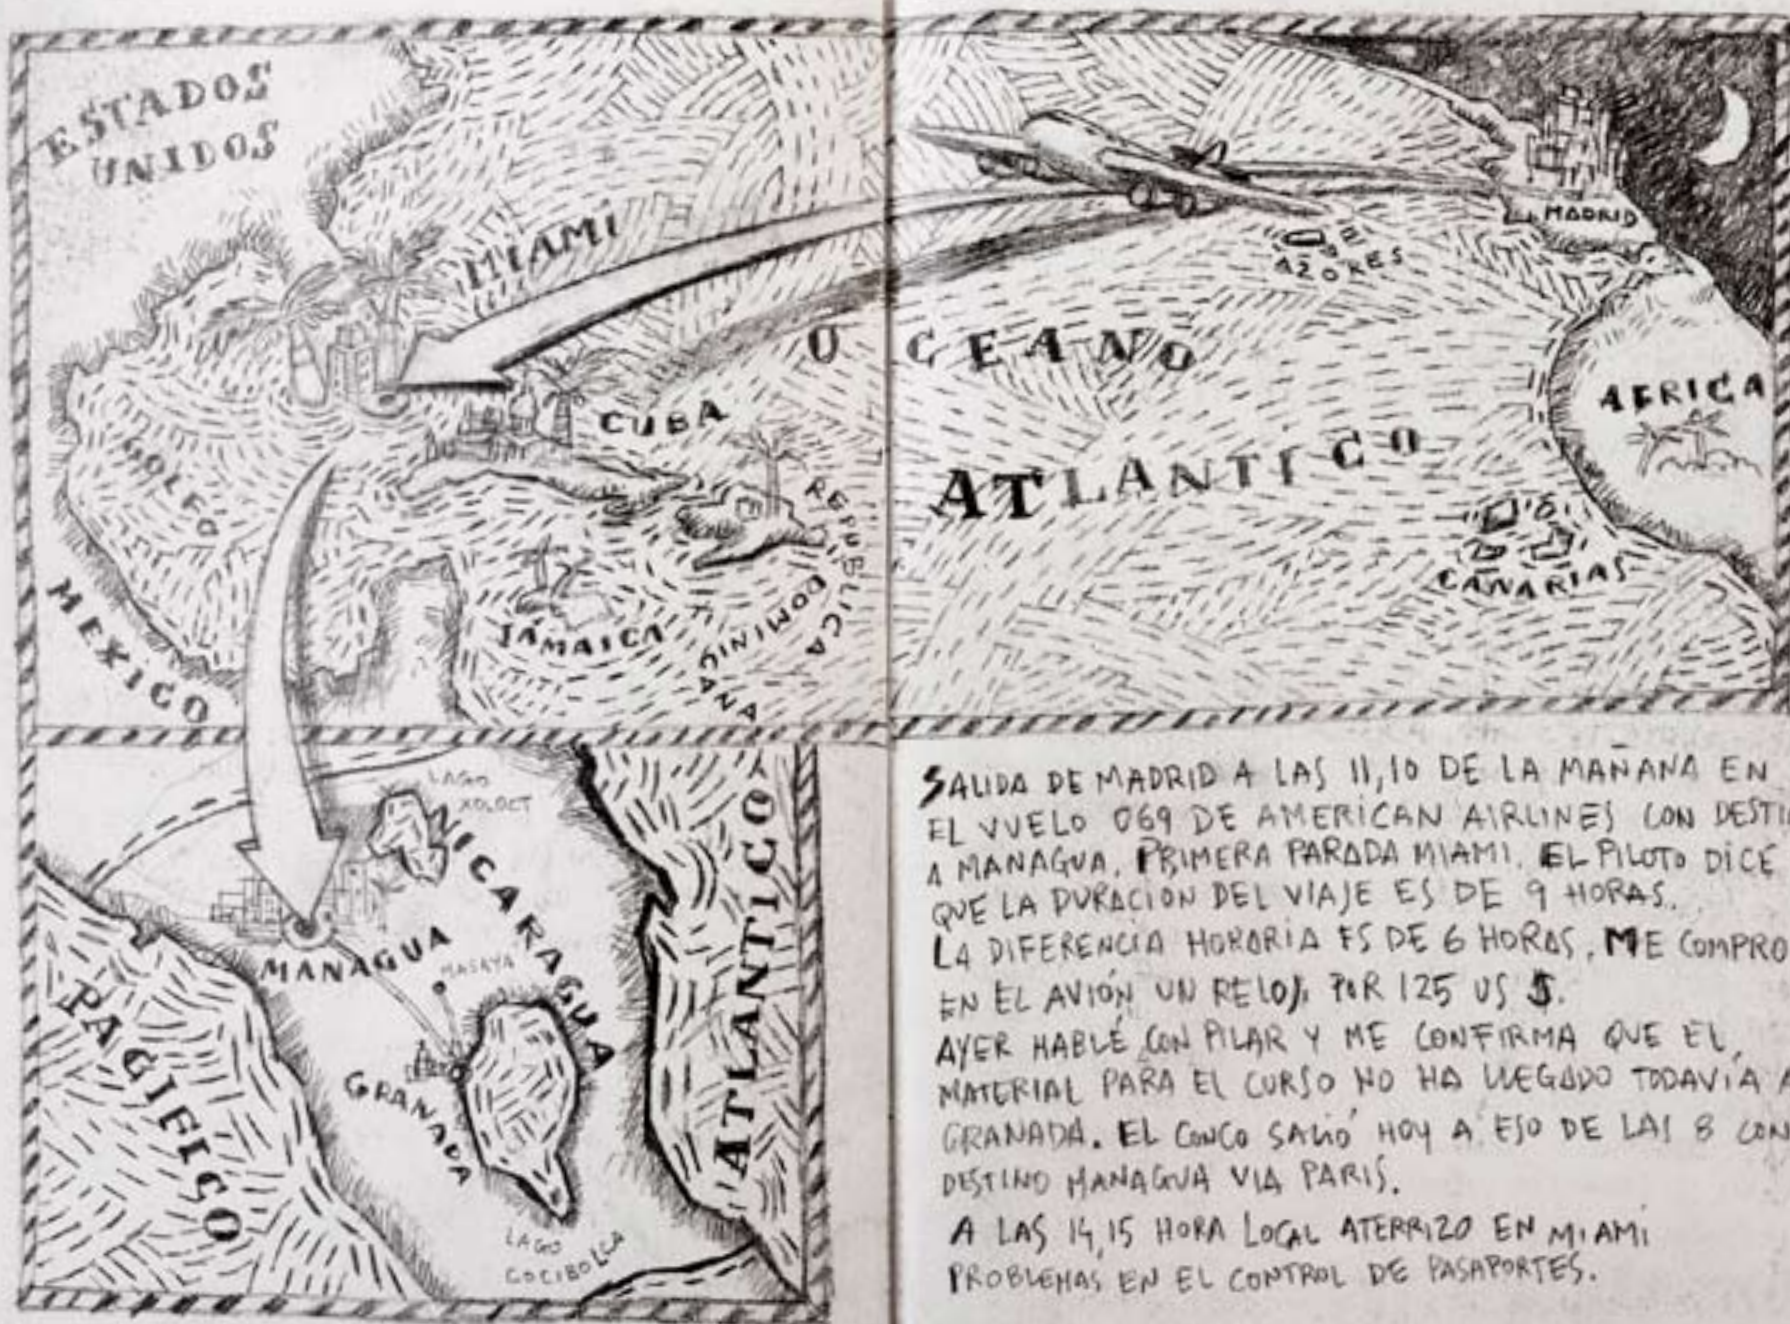 ESTADOS
UNIDOS
MIAMI
MADRID
AZORES
OCEANO
ATLANTICO
AFRICA
CUBA
GOLFO
REPUBLICA
DOMINICANA
CANARIAS
JAMAICA
MEXICO
LAGO
XOLOCT
NICARAGUA
MANAGUA
MASAYA
GRANADA
PACIFICO
ATLANTICO
LAGO
COCIBOLCA
SALIDA DE MADRID A LAS 11,10 DE LA MAÑANA EN
EL VUELO 069 DE AMERICAN AIRLINES CON DESTI
A MANAGUA. PRIMERA PARADA MIAMI. EL PILOTO DICE
QUE LA DURACION DEL VIAJE ES DE 9 HORAS.
LA DIFERENCIA HORARIA ES DE 6 HORAS. ME COMPRO
EN EL AVIÓN UN RELOJ POR 125 US $.
AYER HABLÉ CON PILAR Y ME CONFIRMA QUE EL
MATERIAL PARA EL CURSO NO HA LLEGADO TODAVÍA A
GRANADA. EL CONCO SALIÓ HOY A ESO DE LAS 8 CON
DESTINO MANAGUA VIA PARIS.
A LAS 14,15 HORA LOCAL ATERRIZO EN MIAMI
PROBLEMAS EN EL CONTROL DE PASAPORTES.